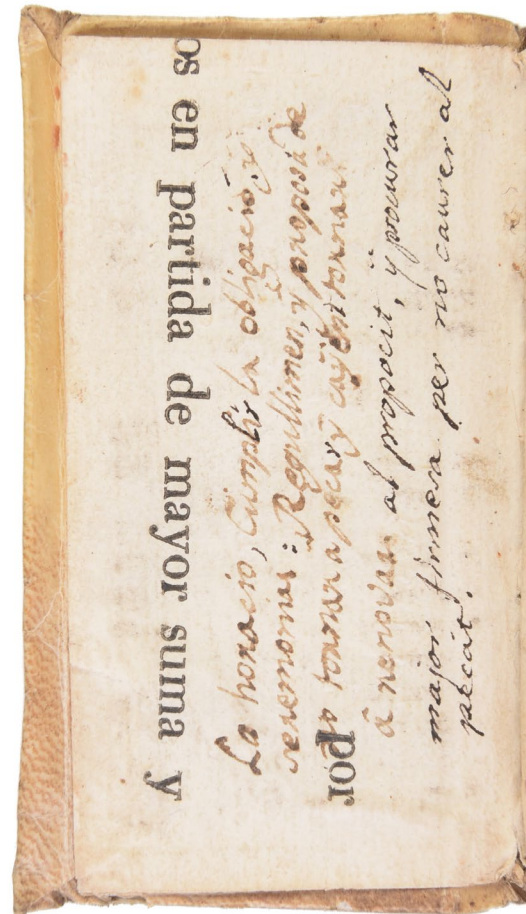 os en partida de mayor suma y
por
La horacio, Cumplir la obligacio, y
seremonias: Reculliment, y proposit de
no tornar a pecar y cayent tornar
â renovar al proposit, ÿ procurar
major firmesa per no caurer al
pecat.